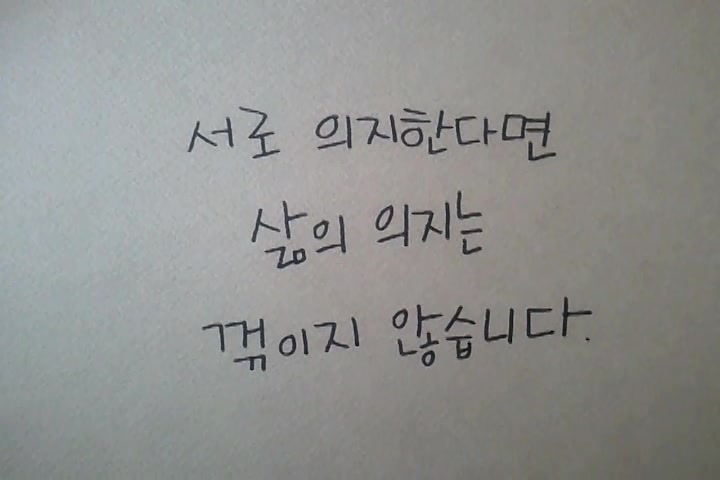 서로 의지한다면
삶의 의지는
꺾이지 않습니다.